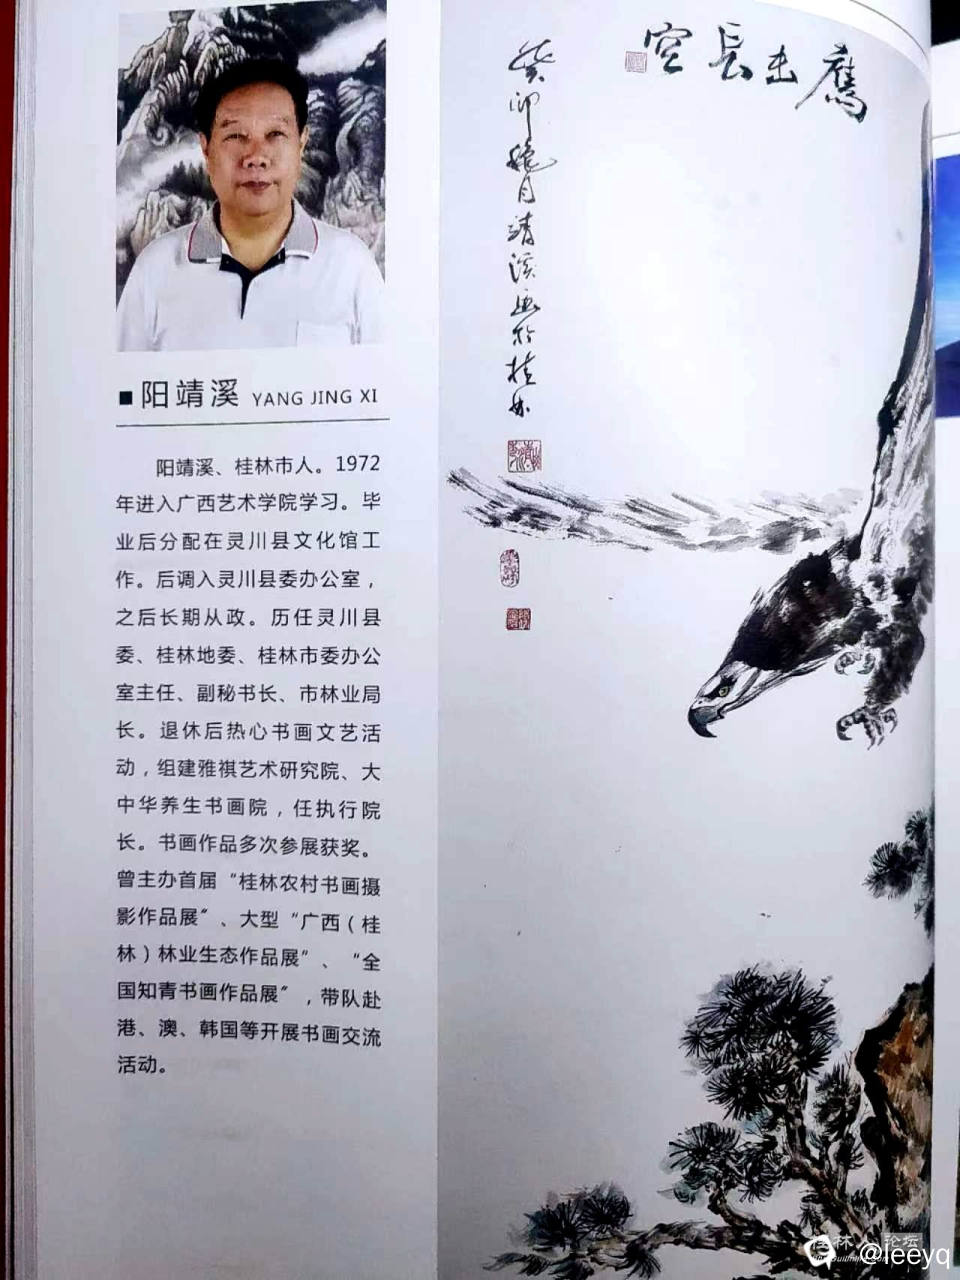 阳靖溪 YANG JING XI
阳靖溪、桂林市人。1972
年进入广西艺术学院学习。毕
业后分配在灵川县文化馆工
作。后调入灵川县委办公室，
之后长期从政。历任灵川县
委、桂林地委、桂林市委办公
室主任、副秘书长、市林业局
长。退休后热心书画文艺活
动，组建雅祺艺术研究院、大
中华养生书画院，任执行院
长。书画作品多次参展获奖。
曾主办首届“桂林农村书画摄
影作品展”、大型“广西（桂
林）林业生态作品展”、“全
国知青书画作品展”，带队赴
港、澳、韩国等开展书画交流
活动。
鹰击長空
癸卯 月靖溪画於桂林
桂林人论坛
@leeyq